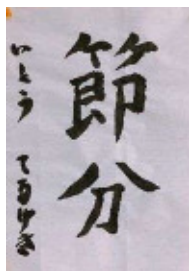 節分
いとう てるゆき